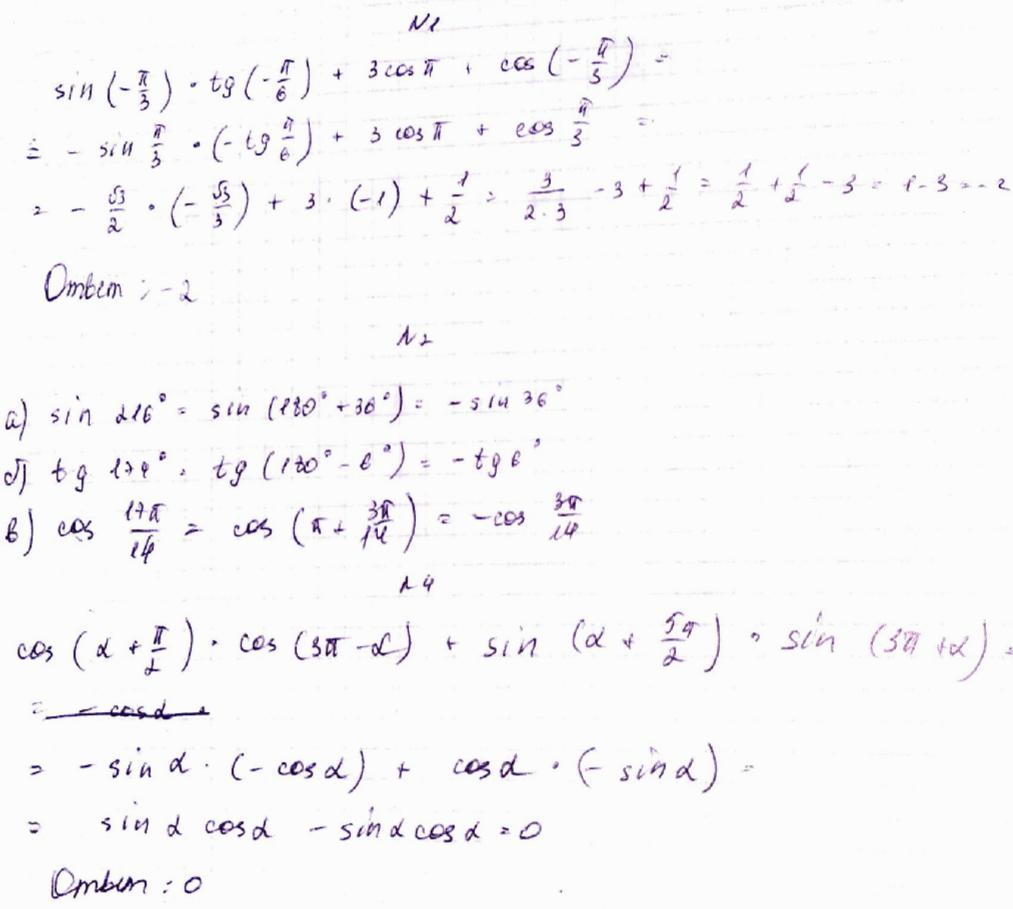 N1
sin (-π/3) · tg (-π/6) + 3 cos π + cos (-π/3) =
= - sin π/3 · (- tg π/6) + 3 cos π + cos π/3 =
= - √3/2 · (- √3/3) + 3 · (-1) + 1/2 = 3/(2·3) - 3 + 1/2 = 1/2 + 1/2 - 3 = 1 - 3 = -2
Ответ: -2
N2
а) sin 216° = sin (180° + 36°) = - sin 36°
б) tg 174° = tg (180° - 6°) = - tg 6°
в) cos 17π/14 = cos (π + 3π/14) = - cos 3π/14
N4
cos (α + π/2) · cos (3π - α) + sin (α + 5π/2) · sin (3π + α) =
= - cos α ·
= - sin α · (- cos α) + cos α · (- sin α) =
= sin α cos α - sin α cos α = 0
Ответ: 0